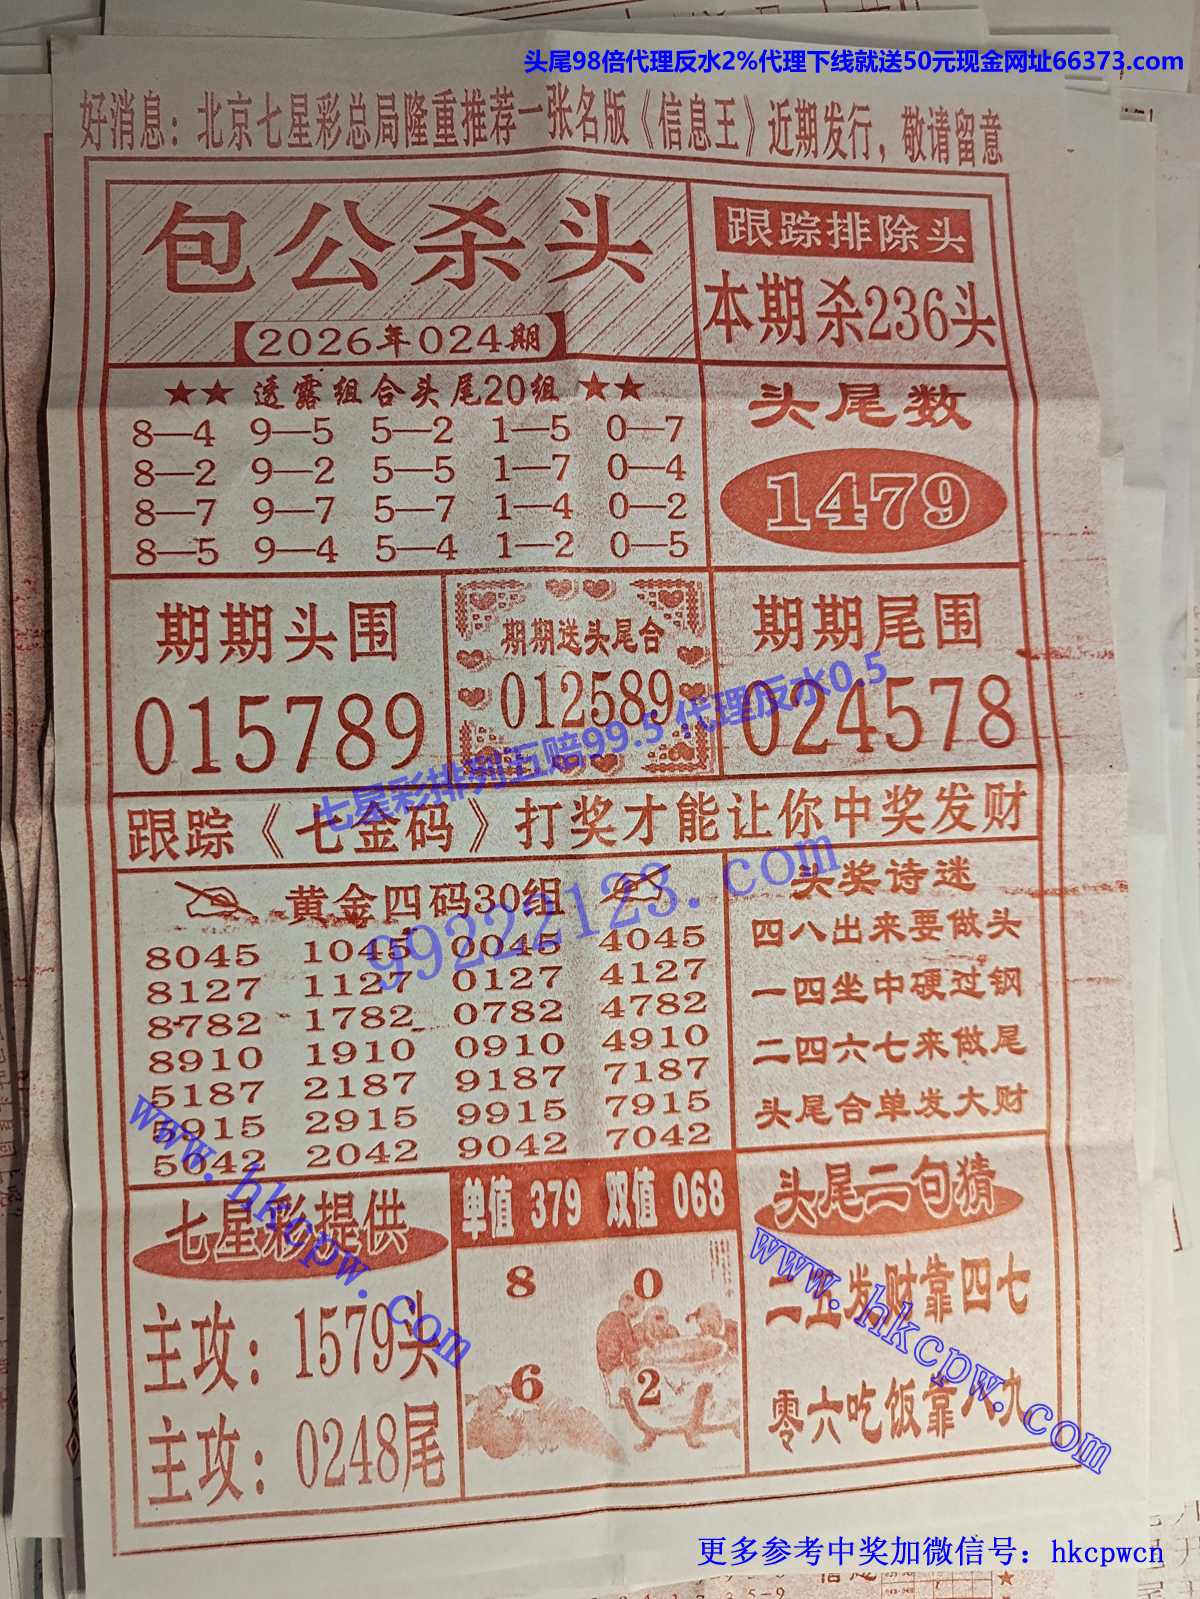 头尾98倍代理反水2%代理下线就送50元现金网址66373.com
好消息：北京七星彩总局隆重推荐一张名版《信息王》近期发行，敬请留意
包公杀头
2026年024期
跟踪排除头
本期杀236头
★★ 透露组合头尾20组 ★★
8—4 9—5 5—2 1—5 0—7
8—2 9—2 5—5 1—7 0—4
8—7 9—7 5—7 1—4 0—2
8—5 9—4 5—4 1—2 0—5
头尾数
1479
期期头围
015789
期期送头尾合
012589
期期尾围
024578
七星彩排列五赔99.5 代理反水0.5
跟踪《七金码》打奖才能让你中奖发财
99222123.com
黄金四码30组
8045 1045 0045 4045
8127 1127 0127 4127
8782 1782 0782 4782
8910 1910 0910 4910
5187 2187 9187 7187
5915 2915 9915 7915
5042 2042 9042 7042
头奖诗迷
四八出来要做头
一四坐中硬过钢
二四六七来做尾
头尾合单发大财
www.hkcpw.com
七星彩提供
主攻：1579头
主攻：0248尾
单值 379 双值 068
8 0
6 2
头尾二句猜
二五发财靠四七
零六吃饭靠八九
www.hkcpw.com
更多参考中奖加微信号：hkcpwcn